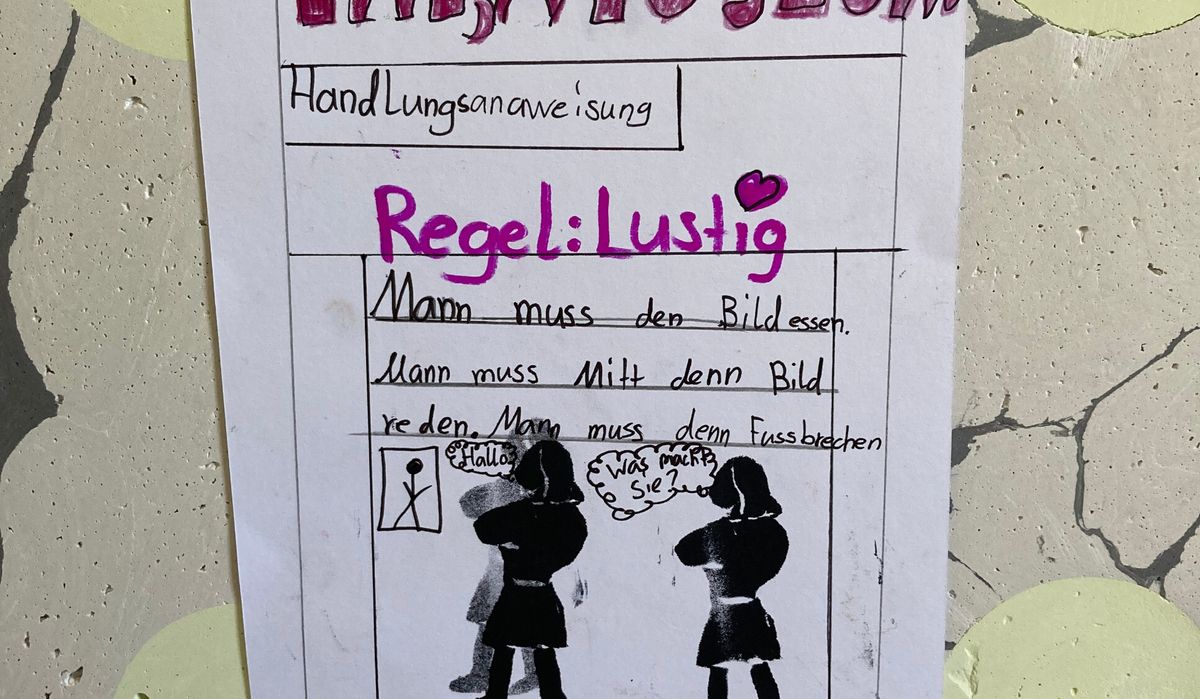 Handlungsanaweisung
Regel:Lustig
Mann muss den Bild essen.
Mann muss Mitt denn Bild
reden. Mann muss denn Fussbrechen
Hallo
Was macht
Sie?